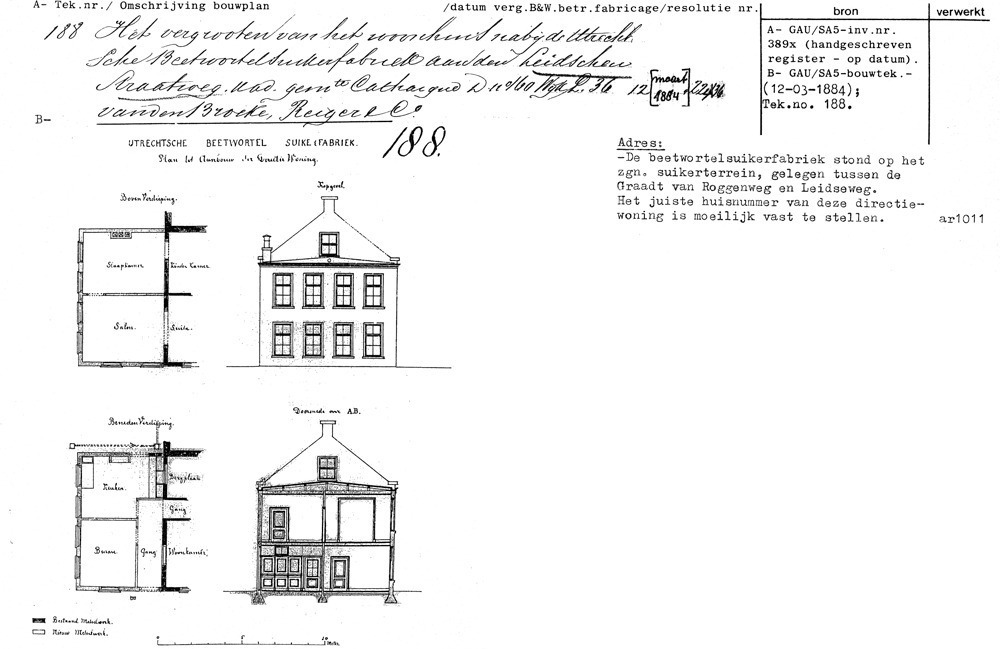 A- Tek.nr./ Omschrijving bouwplan /datum verg.B&W.betr.fabricage/resolutie nr.
bron verwerkt
188 Het vergrooten van het woonhuis nabij de Utrecht.
sche Beetwortelsuikerfabriek aan den Leidschen
Straatweg, kad. gemte Catharijne D n° 960 Wijk L. 36 12 [maart 1884]
van den Broeke, Reiger & Co.
A- GAU/SA5-inv.nr.
389x (handgeschreven
register - op datum).
B- GAU/SA5-bouwtek.-
(12-03-1884);
Tek.no. 188.
B-
UTRECHTSCHE BEETWORTEL SUIKERFABRIEK.
188.
Plan tot Aanbouw der Directie Woning.
Adres:
-De beetwortelsuikerfabriek stond op het
zgn. suikerterrein, gelegen tussen de
Graadt van Roggenweg en Leidseweg.
Het juiste huisnummer van deze directie-
woning is moeilijk vast te stellen. ar1011
Boven Verdieping.
Kopgevel.
Slaapkamer
Kamer
Salon.
Suite.
Beneden Verdieping.
Doorsnede over A.B.
Keuken.
Bergplaats
Gang
Bureau
Gang
Woonkamer.
Bestaand Metselwerk.
Nieuw Metselwerk.
0 5 10 Meter.